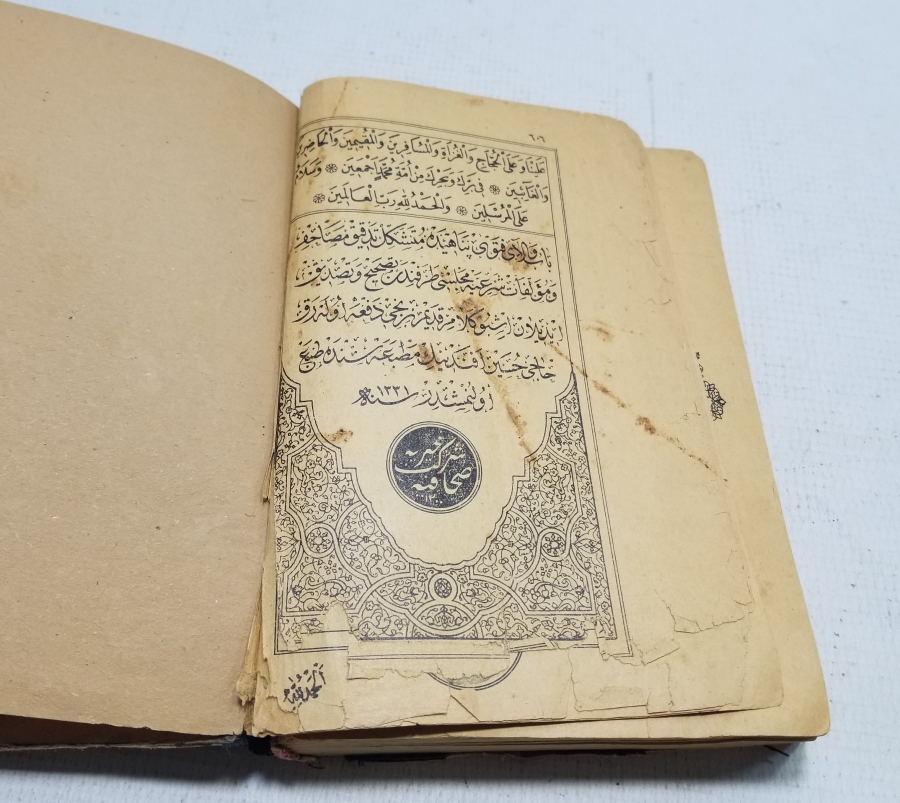 ٦٠٦
عَلَيْنَا وَعَلَى الْحُجَّاجِ وَالْغُزَاةِ وَالْمُسَافِرِينَ وَالْمُقِيمِينَ وَالْحَاضِرِينَ
وَالْغَائِبِينَ ❋ فِى بَرِّكَ وَبَحْرِكَ مِنْ أُمَّةِ مُحَمَّدٍ أَجْمَعِينَ ❋ وَسَلَامٌ
عَلَى الْمُرْسَلِينَ ❋ وَالْحَمْدُ لِلّٰهِ رَبِّ الْعَالَمِينَ ❋
باب والاى فتوى پناهيده متشكل تدقيق مصاحف
ومؤلفات شرعيه مجلسى طرفندن تصحيح وتصديق
ايديلان اشبو كلام قديم برنجى دفعه اوله رق
حاجى حسين افندينك مطبعه سنده طبع
اولنمشدر سنه ١٣٣١
شركت خيريه
صحافيه
الحمد لله